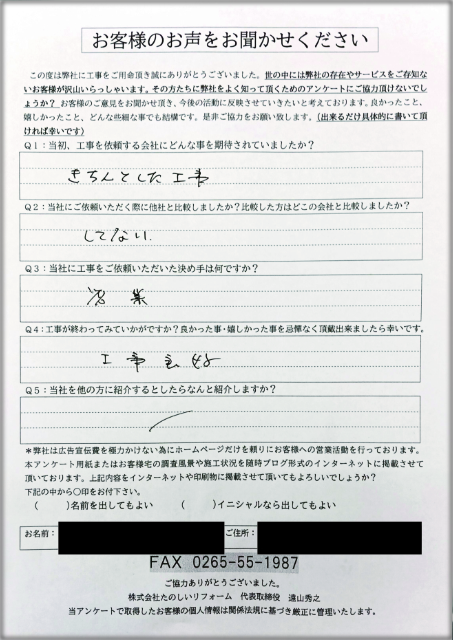 お客様のお声をお聞かせください
この度は弊社に工事をご用命頂き誠にありがとうございました。世の中には弊社の存在やサービスをご存知な
いお客様が沢山いらっしゃいます。その方たちに弊社をよく知って頂くためのアンケートにご協力頂けないでし
ょうか? お客様のご意見をお聞かせ頂き、今後の活動に反映させていきたいと考えております。良かったこと、
嬉しかったこと、どんな些細な事でも結構です。是非ご協力をお願い致します。(出来るだけ具体的に書いて頂
ければ幸いです)
Q1:当初、工事を依頼する会社にどんな事を期待されていましたか?
きちんとした工事
Q2:当社にご依頼いただく際に他社と比較しましたか?比較した方はどこの会社と比較しましたか?
してない.
Q3:当社に工事をご依頼いただいた決め手は何ですか?
Q4:工事が終わってみていかがですか?良かった事・嬉しかった事を忌憚なく頂戴出来ましたら幸いです。
工事良好
Q5:当社を他の方に紹介するとしたらなんと紹介しますか?
*弊社は広告宣伝費を極力かけない為にホームページだけを頼りにお客様への営業活動を行っております。
本アンケート用紙またはお客様宅の調査風景や施工状況を随時ブログ形式のインターネットに掲載させて
頂いております。上記内容をインターネットや印刷物に掲載させて頂いてもよろしいでしょうか?
下記の中から○印をお付下さい。
(    )名前を出してもよい    (    )イニシャルなら出してもよい
お名前: ご住所:
FAX 0265-55-1987
ご協力ありがとうございました。
株式会社たのしいリフォーム 代表取締役 遠山秀之
当アンケートで取得したお客様の個人情報は関係法規に基づき厳正に管理いたします。